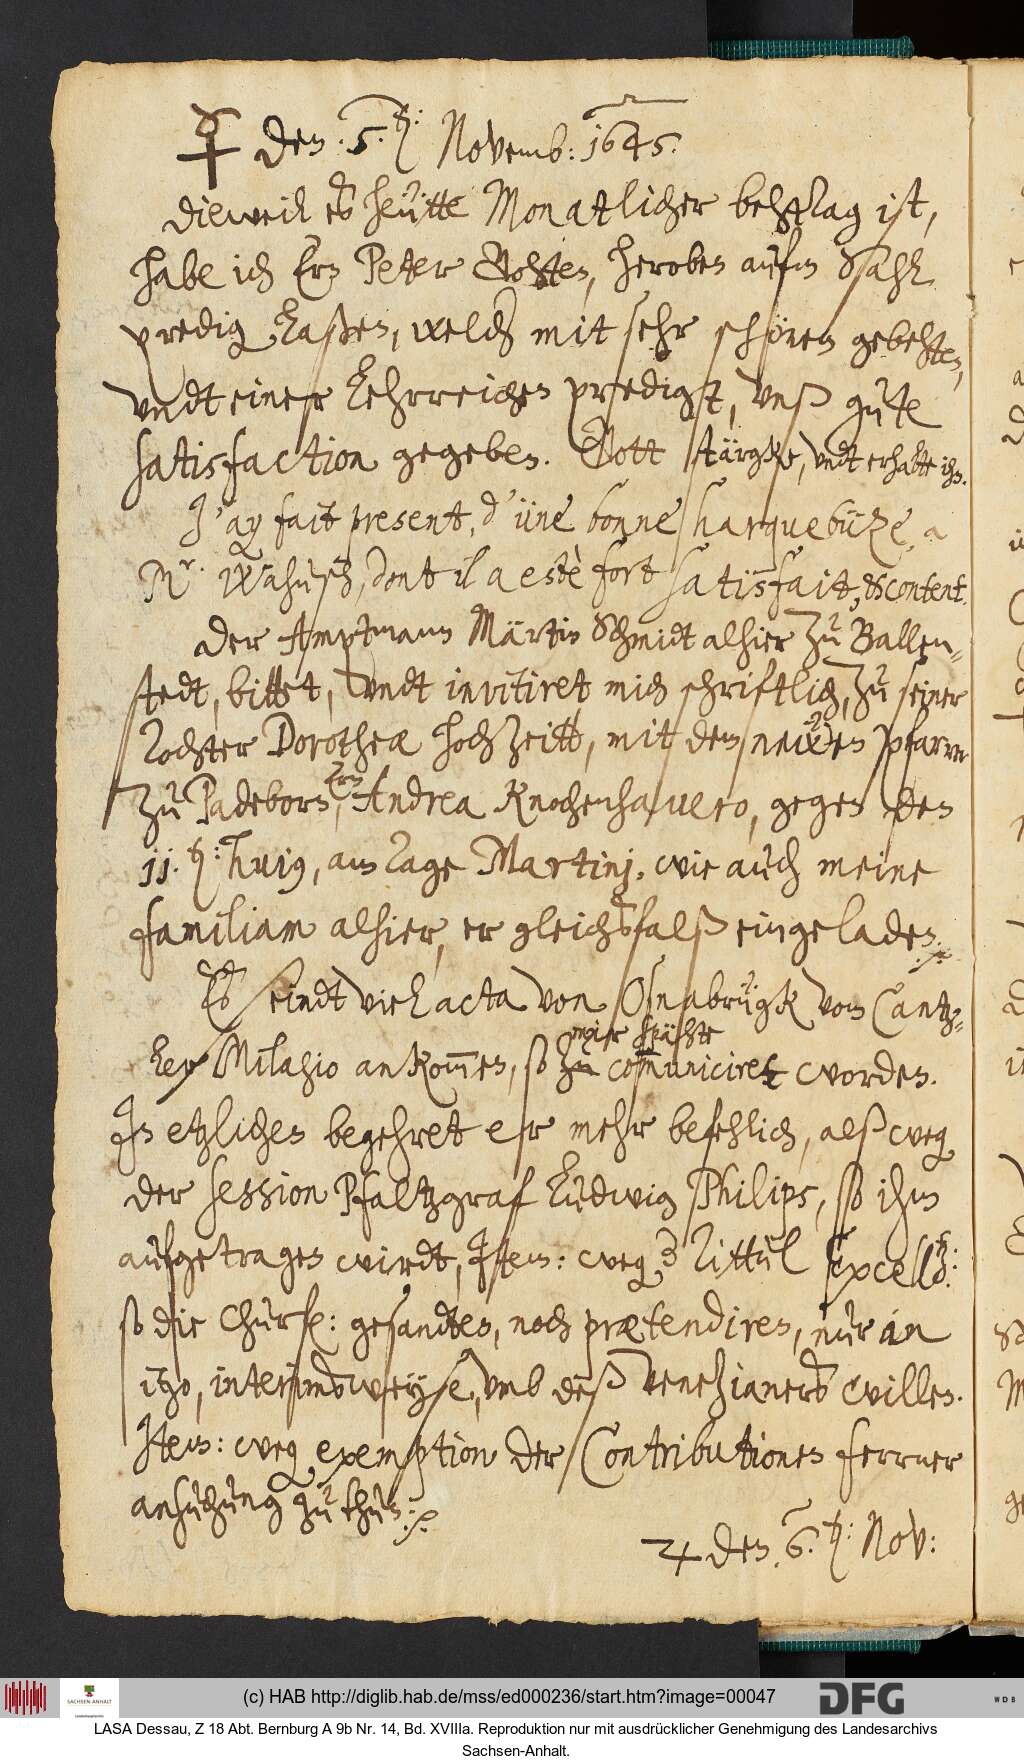 ☿ den. 5.ten: Novemb: 1645.
Dieweil es heütte Monatlicher behttag ist,
habe ich Ern Peter Gohten, heroben aufm Sahl
predig. laßen, welch mit sehr schönen gebehten,
undt einer lehrreichen predigt, unß gute
satisfaction gegeben. Gott stärgke, undt erhalte ihn.
J'ay fait present, d'üne bonne harquebüze, a
Mr. Wahuß, dont il a estè fort satisfait, et content.
Der Amptmann Märtin Schmidt alhier zu Ballen¬
stedt, bittet, undt invitiret mich schriftlich, zu seiner
Tochter Dorotheæ hochzeitt, mit dem neuen Pfarrer
zu Padeborn, Ern Andrea Knochenhawero, gegen den
11.ten: hujus, am Tage Martinj, wie auch meine
familiam alhier, er gleichsfalß eingeladen.
Es seindt viel acta von Oßnabrügk vom Cantz¬
ler Milagio ankommen, so mir heütte
zu communiciret worden.
In etzlichen begehret er mehr befehlich, alß weg.
der session Pfaltzgraf Ludwig Philips, so ihm
aufgetragen wirdt, Item: weg. des Tittul Excell:
so die Churf: gesandten, noch prætendiren, nur an
itzo, interimsweyse, umb deß Venetzianers willen.
Item: weg. exemption der Contributionen ferrner
ansuchung zu thun.
♃ den. 6.ten: Nov:
(c) HAB http://diglib.hab.de/mss/ed000236/start.htm?image=00047
SACHSEN-ANHALT
DFG
WDB
LASA Dessau, Z 18 Abt. Bernburg A 9b Nr. 14, Bd. XVIIIa. Reproduktion nur mit ausdrücklicher Genehmigung des Landesarchivs
Sachsen-Anhalt.